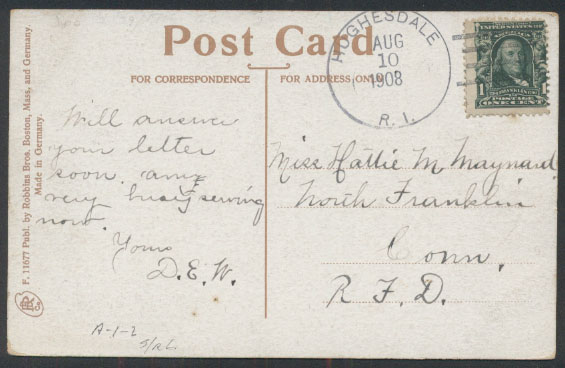 Post Card
FOR CORRESPONDENCE
FOR ADDRESS ONLY
HUGHESDALE
AUG
10
1908
R. I.
UNITED STATES OF
1
FRANKLIN
POSTAGE
ONE CENT
F. 11677 Publ. by Robbins Bros. Boston, Mass, and Germany.
Made in Germany.
Will answer
your letter
soon. am
very busy sewing
now.
Yours
D. E. W.
Miss Hattie M Maynard
North Franklin
Conn.
R. F. D.
A-1-2